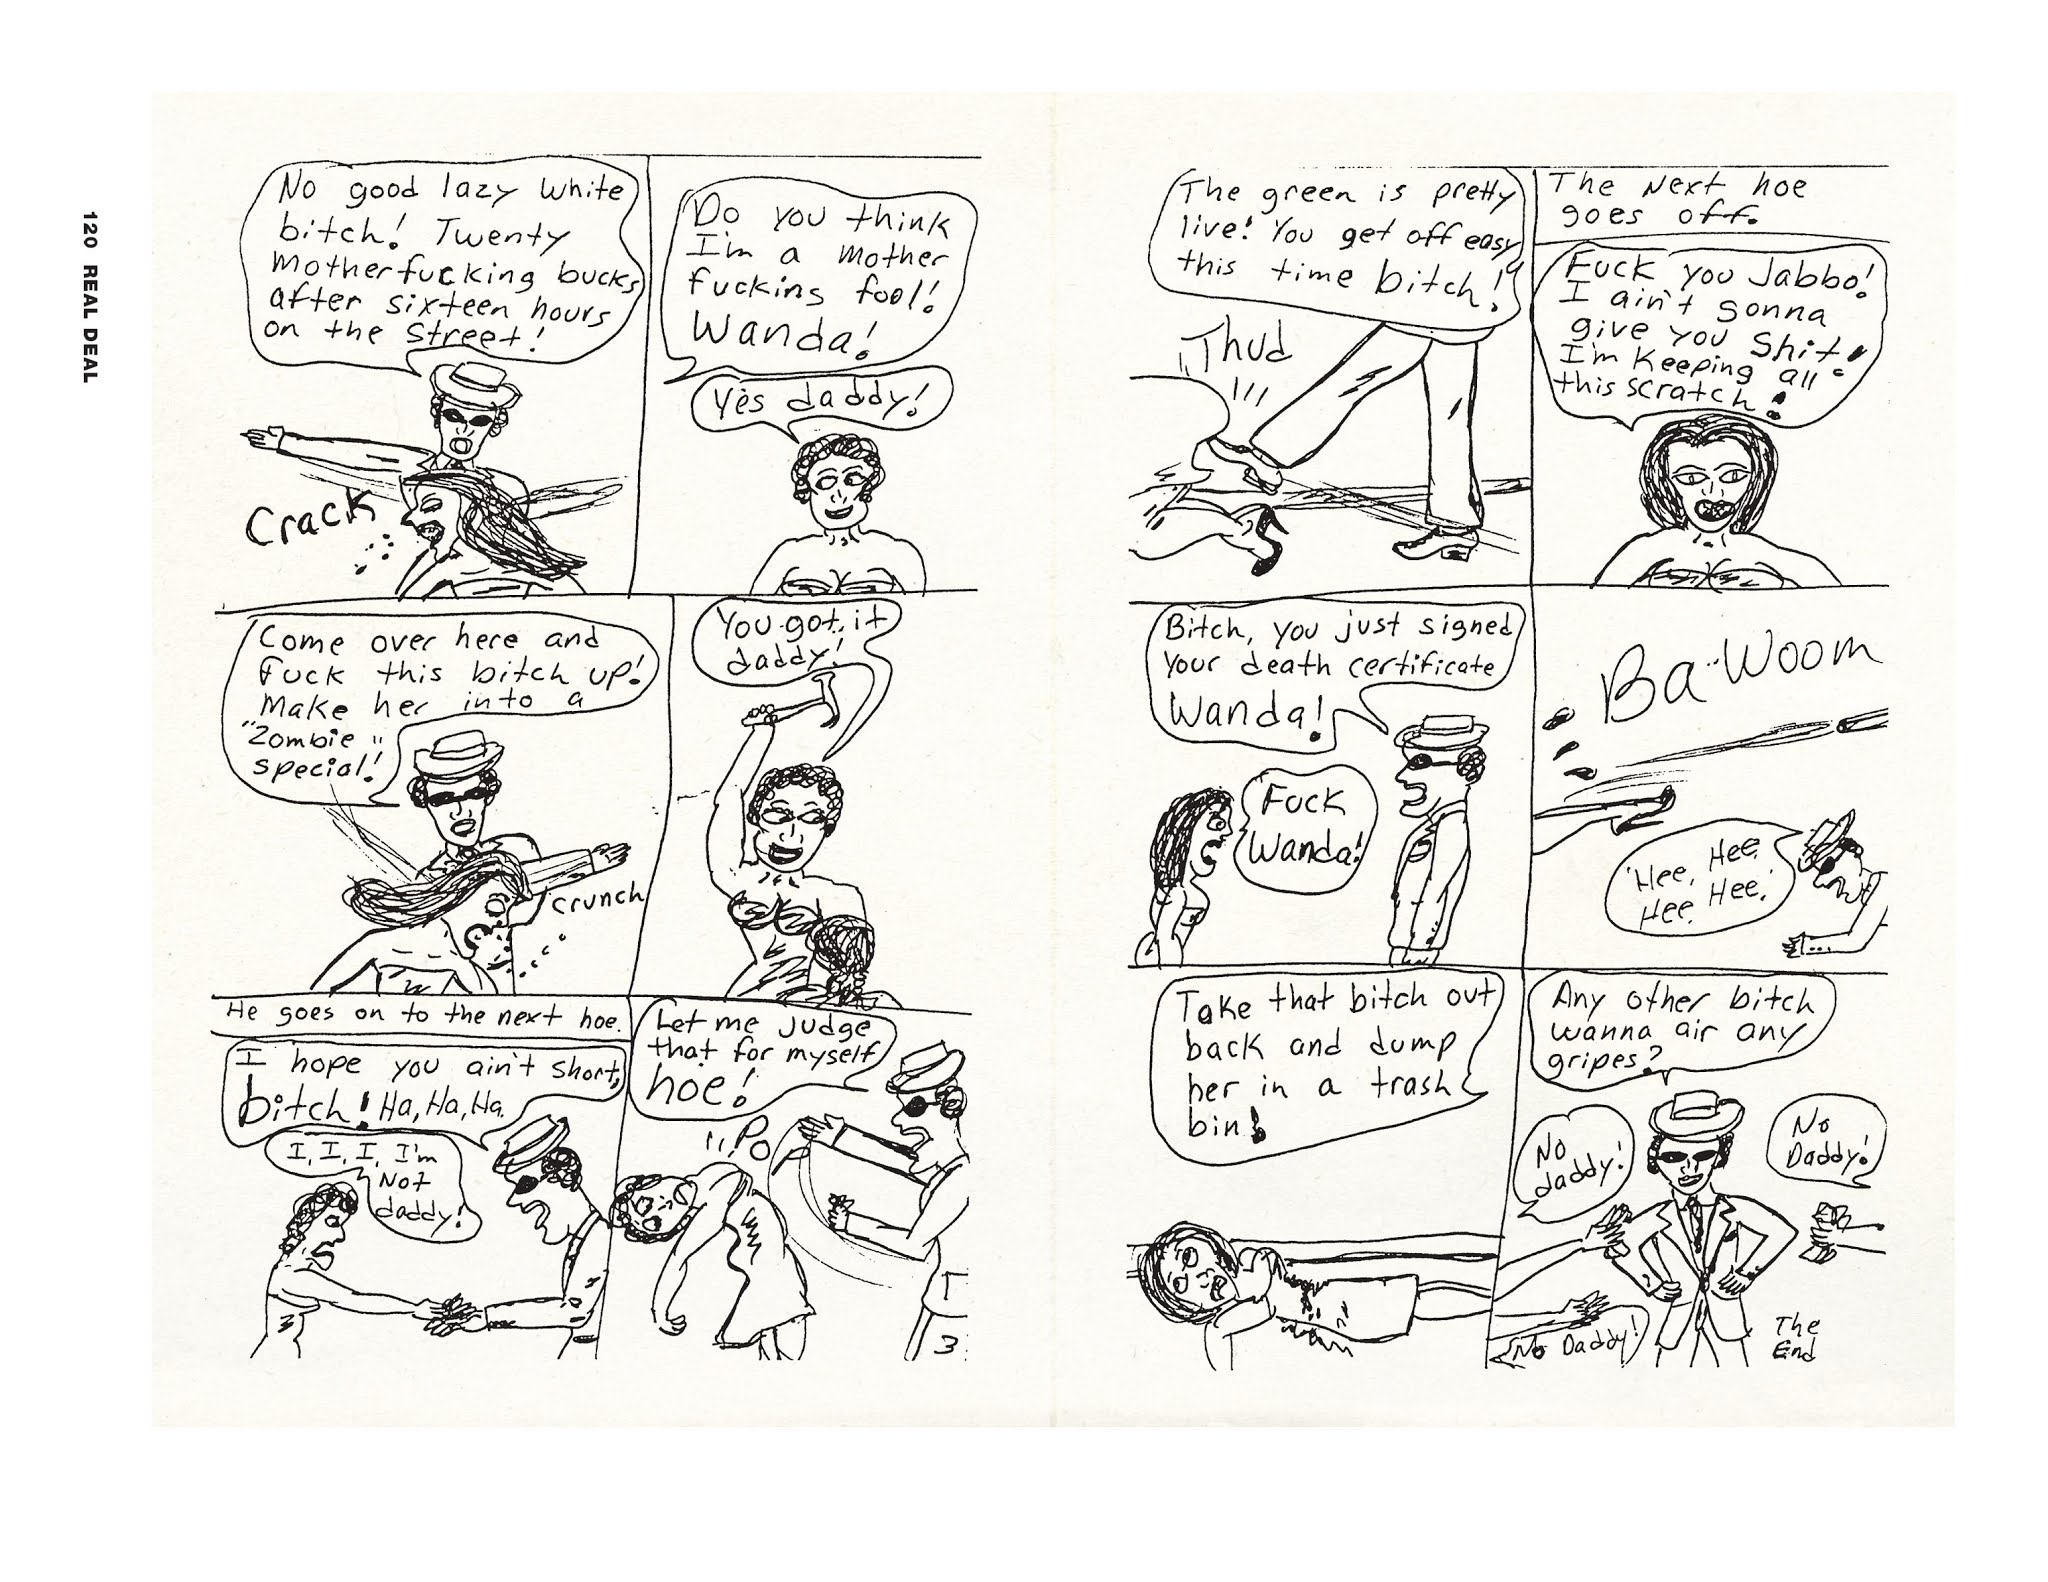 120 REAL DEAL
No good lazy white
bitch! Twenty
Motherfucking bucks
after sixteen hours
on the street!
Crack
Do you think
I'm a mother
fucking fool!
Wanda!
Yes daddy!
Come over here and
Fuck this bitch up!
Make her into a
"Zombie"
special!
crunch
You got it
daddy!
He goes on to the next hoe.
I hope you ain't short,
bitch! Ha, Ha, Ha.
I, I, I, I'm
Not
daddy!
Let me judge
that for myself
hoe!
Po
3
The green is pretty
live! You get off easy
this time bitch!
Thud
!!!
The Next hoe
goes off.
Fuck you Jabbo!
I ain't gonna
give you Shit!
I'm keeping all
this scratch!
Bitch, you just signed
your death certificate
Wanda!
Fuck
Wanda!
Ba-Woom
Hee, Hee.
Hee, Hee!
Take that bitch out
back and dump
her in a trash
bin!
Any other bitch
wanna air any
gripes?
No
daddy!
No
Daddy!
No Daddy!
The
End